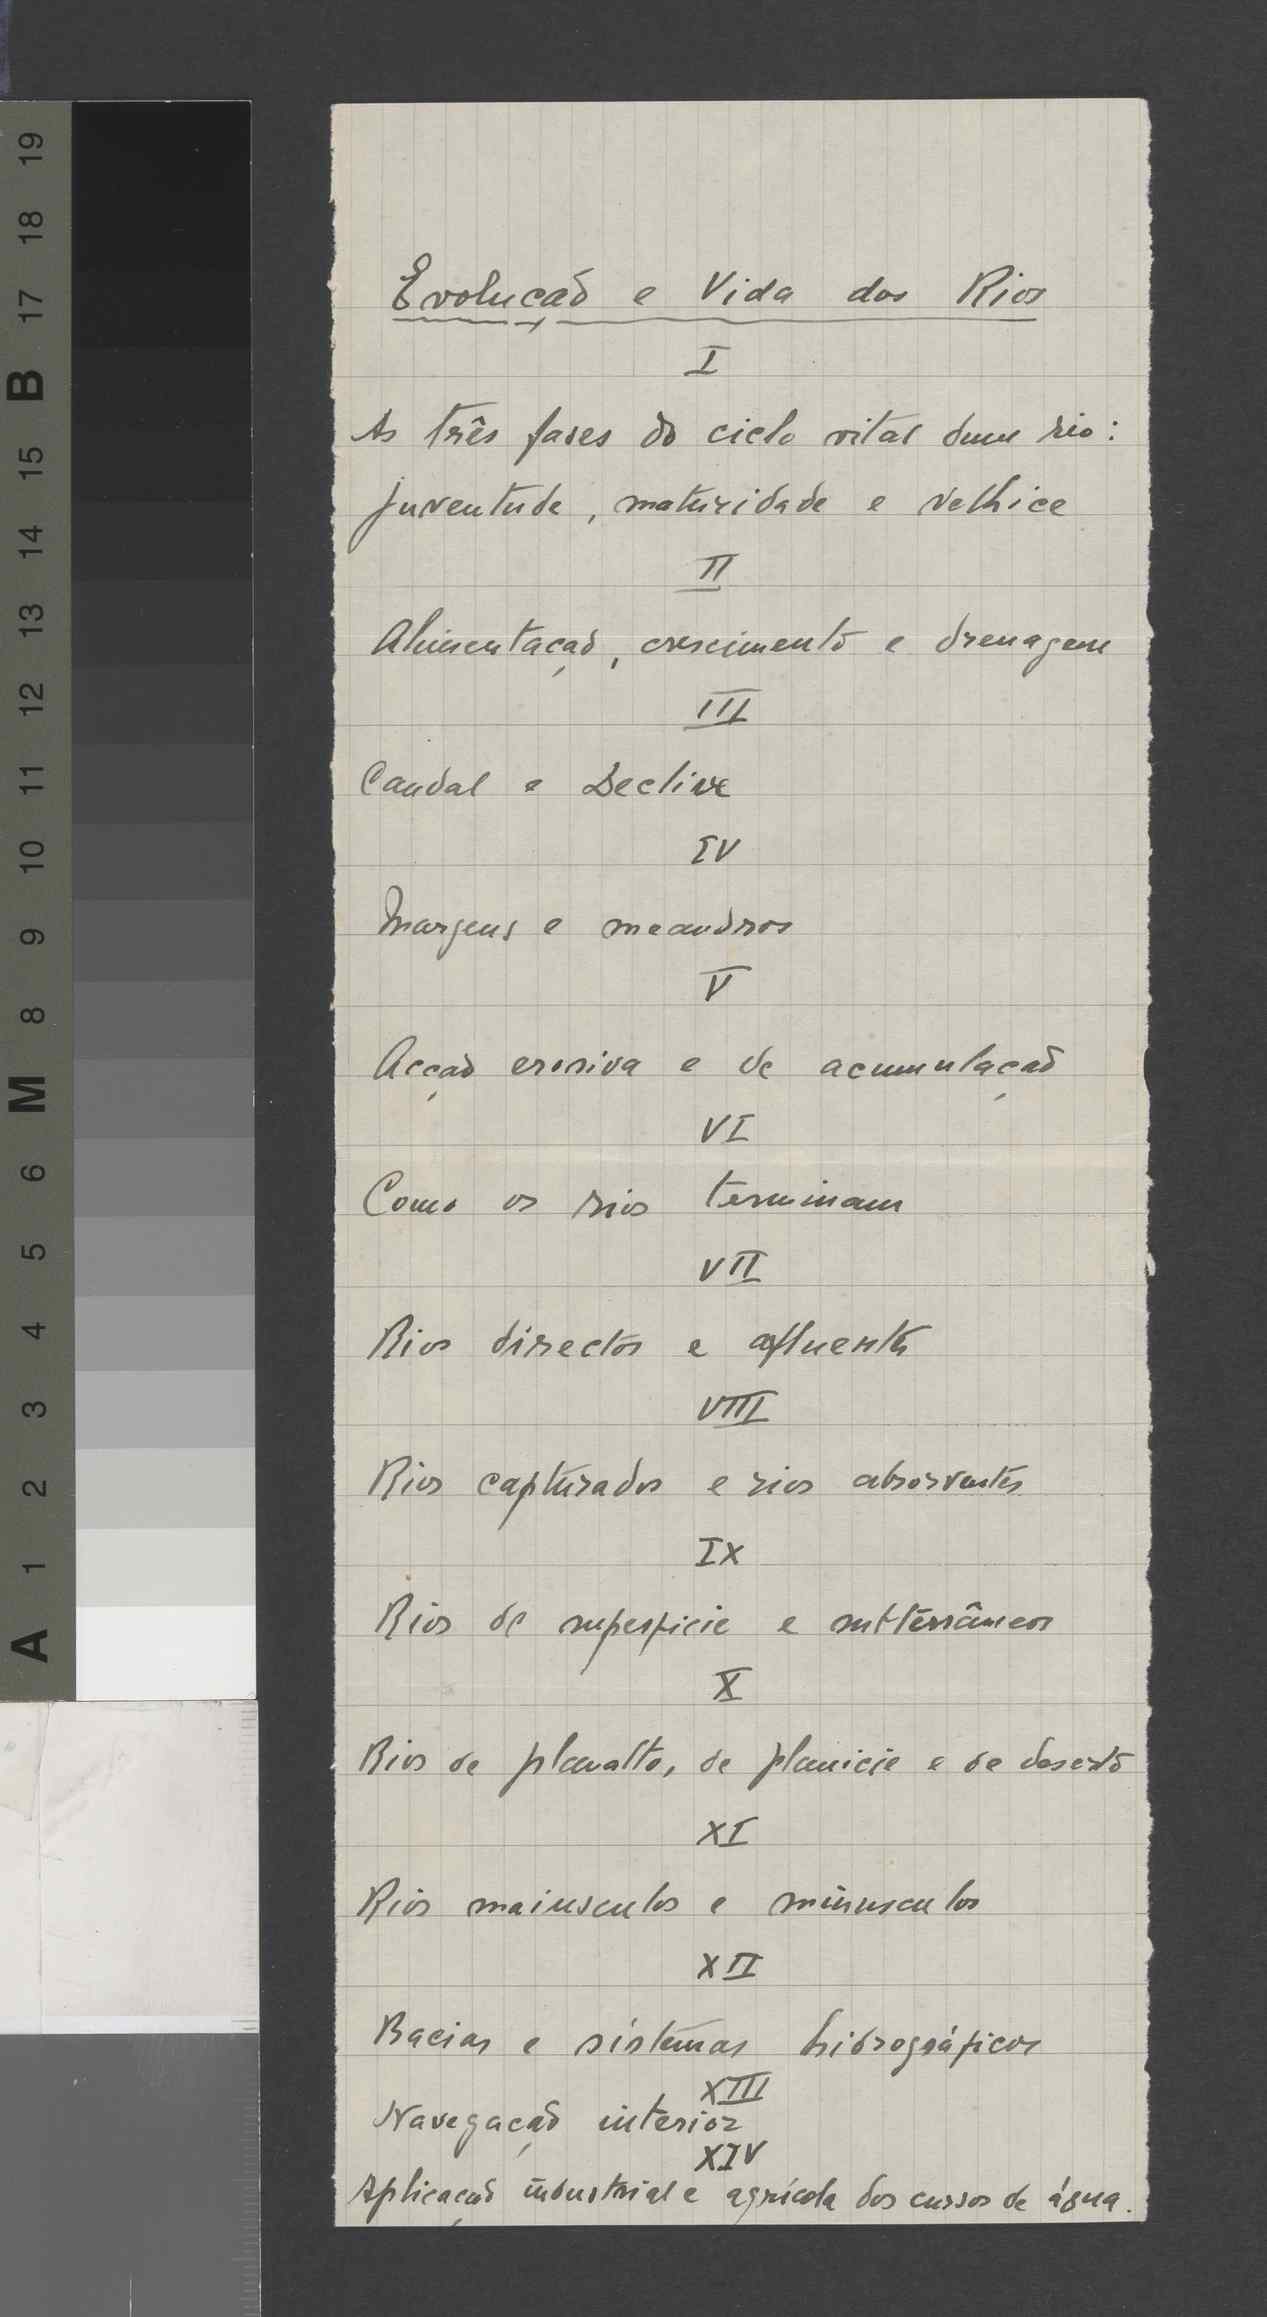 Evolução e Vida dos Rios
I
As três fases do ciclo vital dum rio:
juventude, maturidade e velhice
II
Alimentação, crescimento e drenagem
III
Caudal e Declive
IV
Margens e meandros
V
Acção erosiva e de acumulação
VI
Como os rios terminam
VII
Rios directos e afluentes
VIII
Rios capturados e rios absorventes
IX
Rios de superficie e subterrâneos
X
Rios de planalto, de planicie e de deserto
XI
Rios maiusculos e minusculos
XII
Bacias e sistemas hidrográficos
XIII
Navegação interior
XIV
Aplicação industrial e agrícola dos cursos de água.
A 1 2 3 4 5 6 M 8 9 10 11 12 13 14 15 B 17 18 19